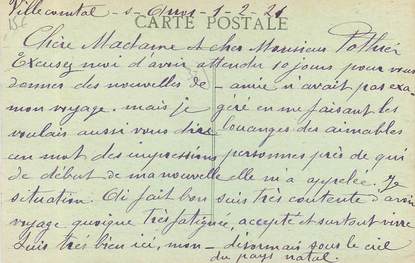 Villecomtal - s - Arros - 1 - 2 - 21
CARTE POSTALE
Chère Madame et cher Monsieur Pothier
Excusez moi d'avoir attendu 10 jours pour vous
donner des nouvelles de
mon voyage, mais je
voulais aussi vous dire
un mot des impressions
de début de ma nouvelle
situation. Il fait bon
voyage quoique très fatiguée,
suis très bien ici, mon
amie n'avait pas exa-
géré en me faisant les
louanges des aimables
personnes près de qui
elle m'a appelée. Je
suis très contente d'avoir
accepté et surtout vivre
désormais sous le ciel
du pays natal.